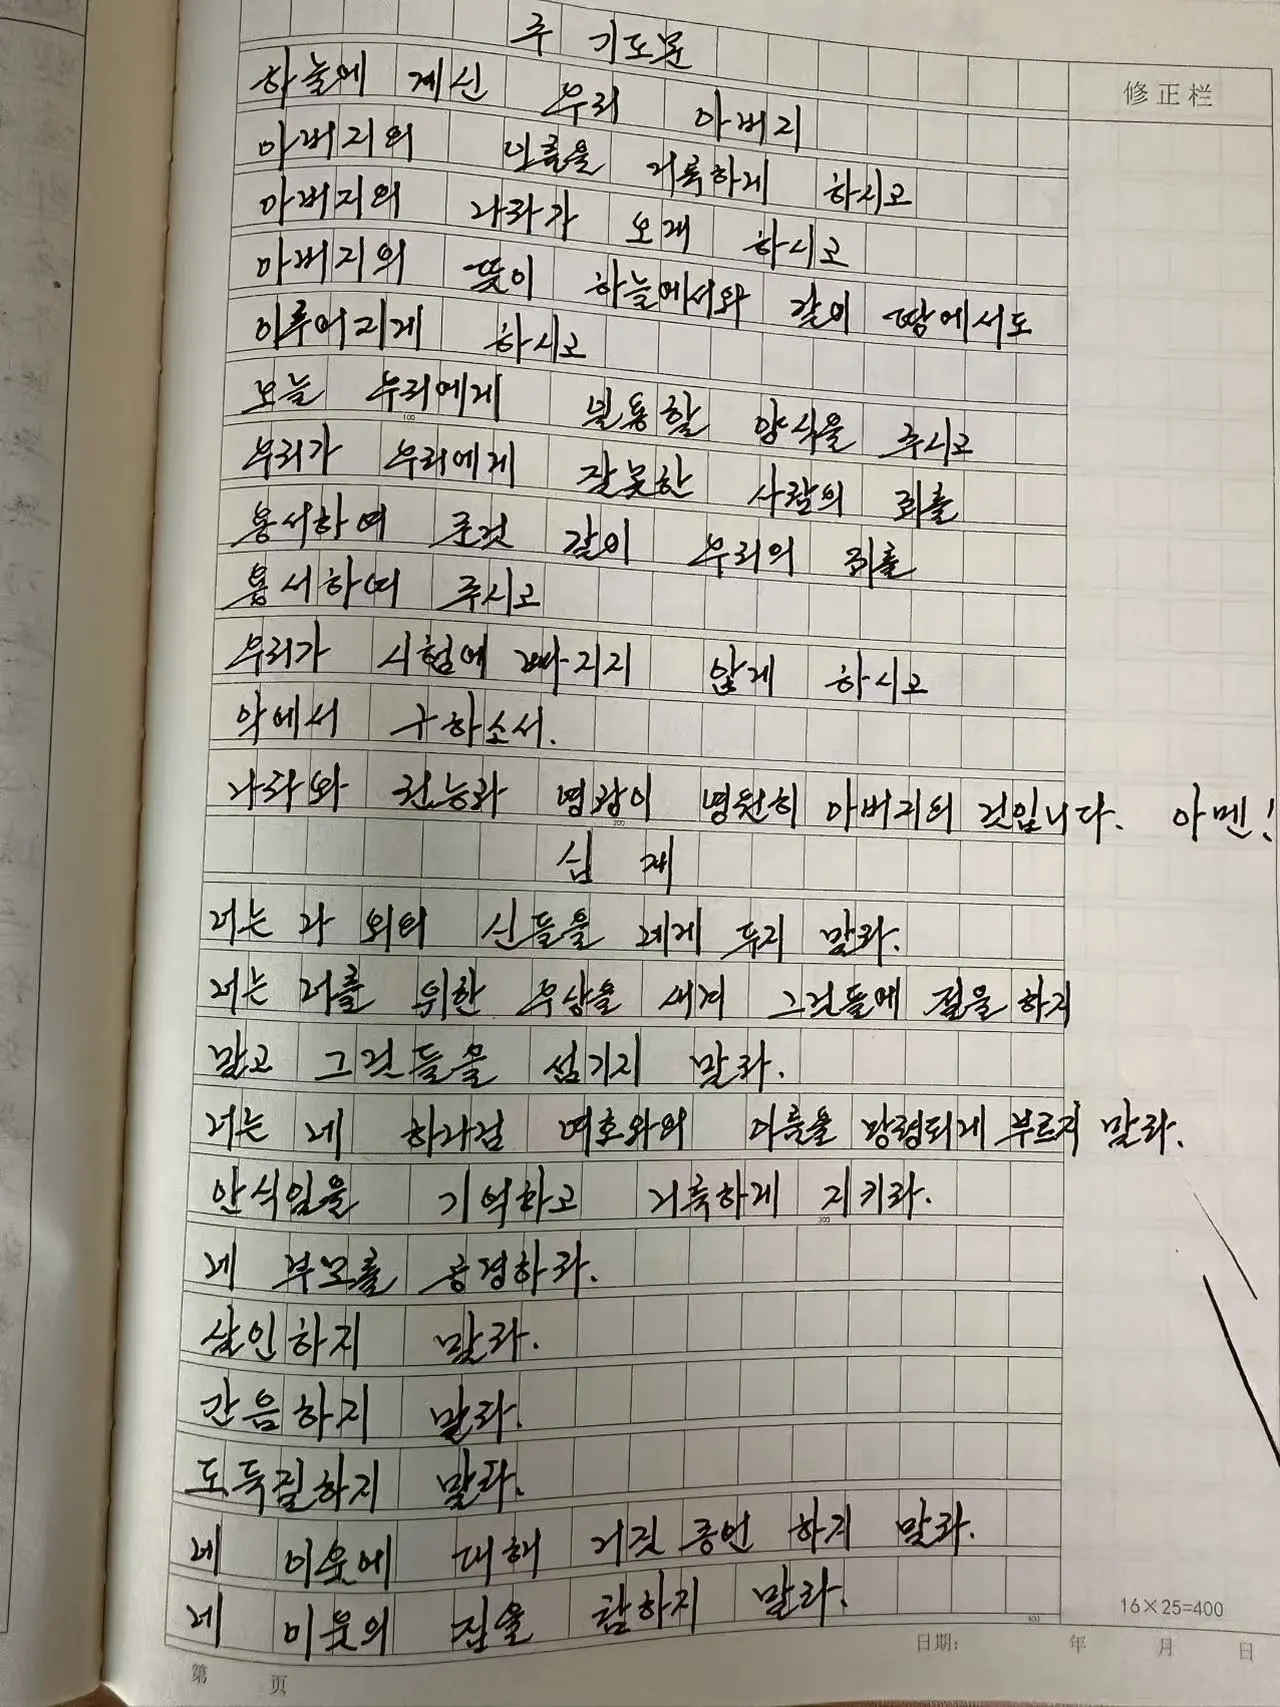 주 기도문
修正栏
하늘에 계신 우리 아버지
아버지의 이름을 거룩하게 하시고
아버지의 나라가 오게 하시고
아버지의 뜻이 하늘에서와 같이 땅에서도
이루어지게 하시고
오늘 우리에게 필용할 양식을 주시고
100
우리가 우리에게 잘못한 사람의 죄를
용서하여 준것 같이 우리의 죄를
용서하여 주시고
우리가 시험에 빠지지 않게 하시고
악에서 구하소서.
나라와 권능과 영광이 영원히 아버지의 것입니다. 아멘!
200
십 계
너는 나 외의 신들을 네게 두지 말라.
너는 너를 위한 우상을 새겨 그것들에 절을 하지
말고 그것들을 섬기지 말라.
너는 네 하나님 여호와의 이름을 망령되게 부르지 말라.
안식일을 기억하고 거룩하게 지키라.
300
네 부모를 공경하라.
살인하지 말라.
간음하지 말라.
도둑질하지 말라.
네 이웃에 대해 거짓 증언 하지 말라.
네 이웃의 집을 탐하지 말라.
400
16×25=400
日期: 年 月 日
第 页